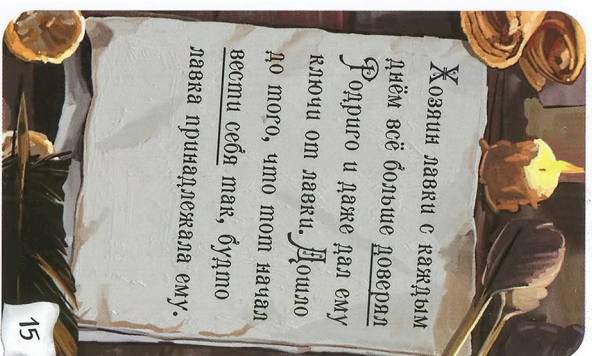 Хозяин лавки с каждым
днём всё больше доверял
Родриго и даже дал ему
ключи от лавки. Дошло
до того, что тот начал
вести себя так, будто
лавка принадлежала ему.
15